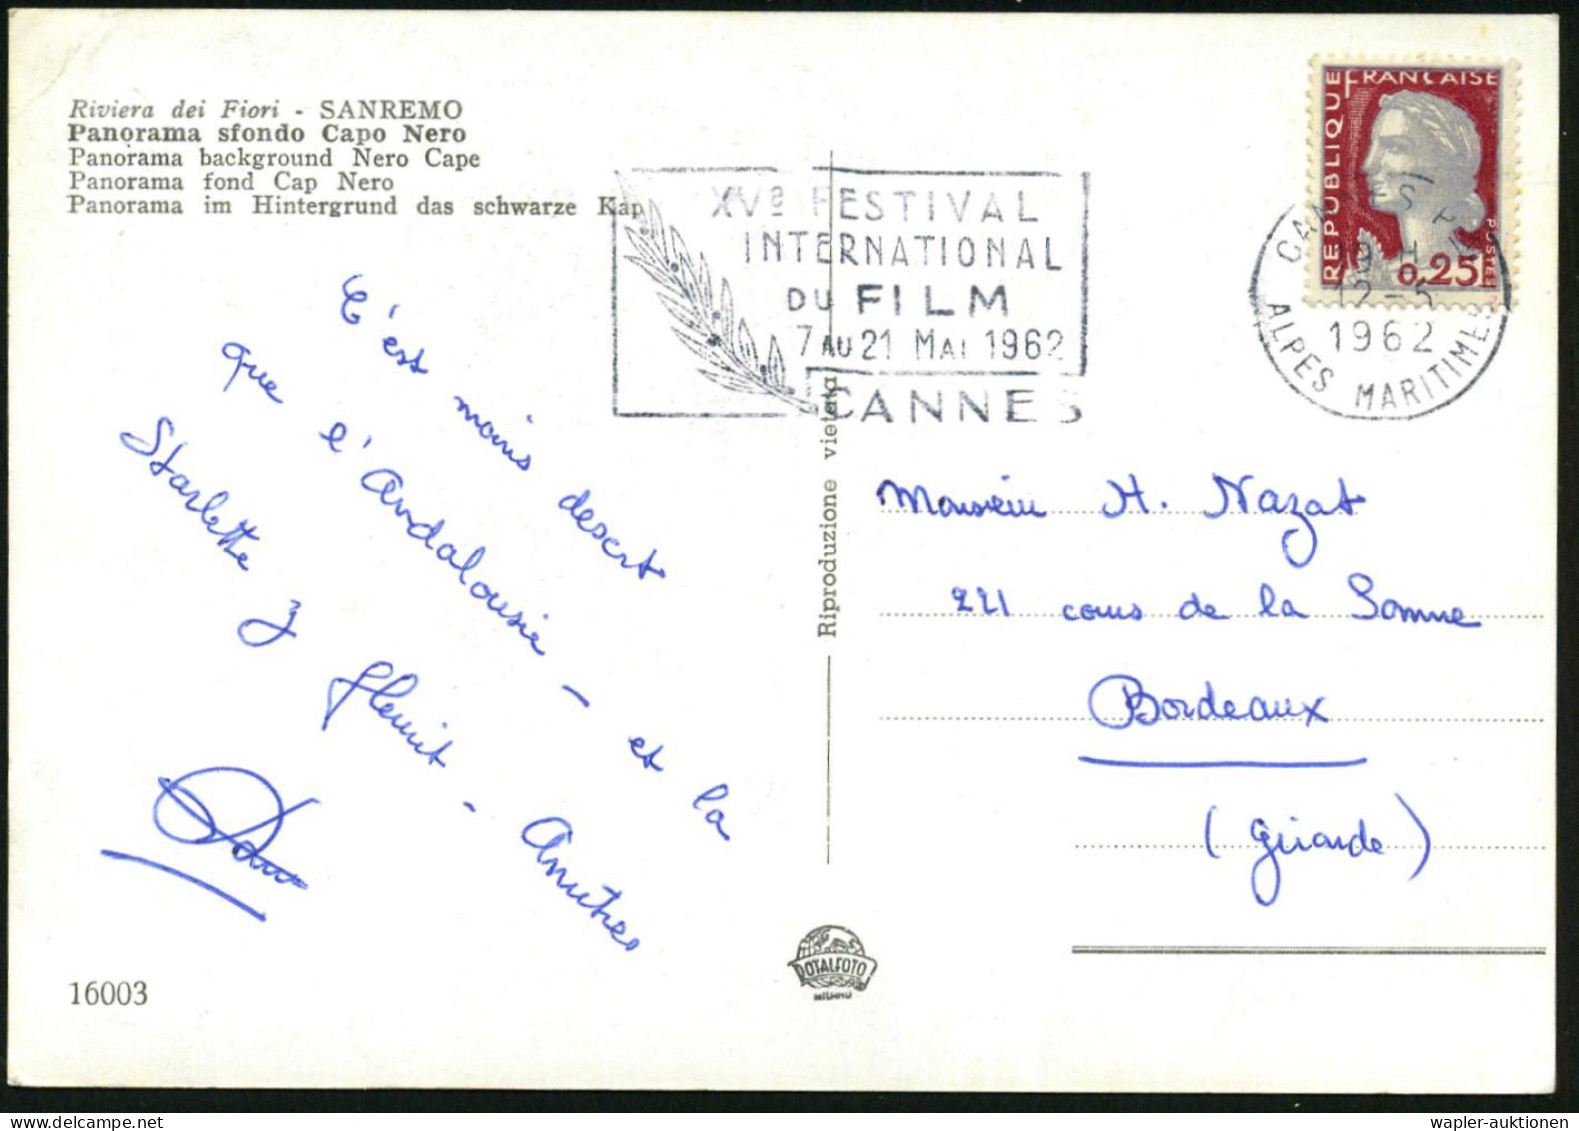 Riviera dei Fiori - SANREMO
Panorama sfondo Capo Nero
Panorama background Nero Cape
Panorama fond Cap Nero
Panorama im Hintergrund das schwarze Kap
XVe FESTIVAL
INTERNATIONAL
DU FILM
7 AU 21 MAI 1962
CANNES
RÉPUBLIQUE FRANÇAISE
POSTES
0,25F
CANNES
12-5
1962
ALPES MARITIMES
C'est moins desert
que l'Andalousie - et la
Starlette y fleurit - Amitiés
Monsieur H. Nazat
221 cours de la Somme
Bordeaux
(Gironde)
Riproduzione vietata
ROTALFOTO
MILANO
16003
wapler-auktionen